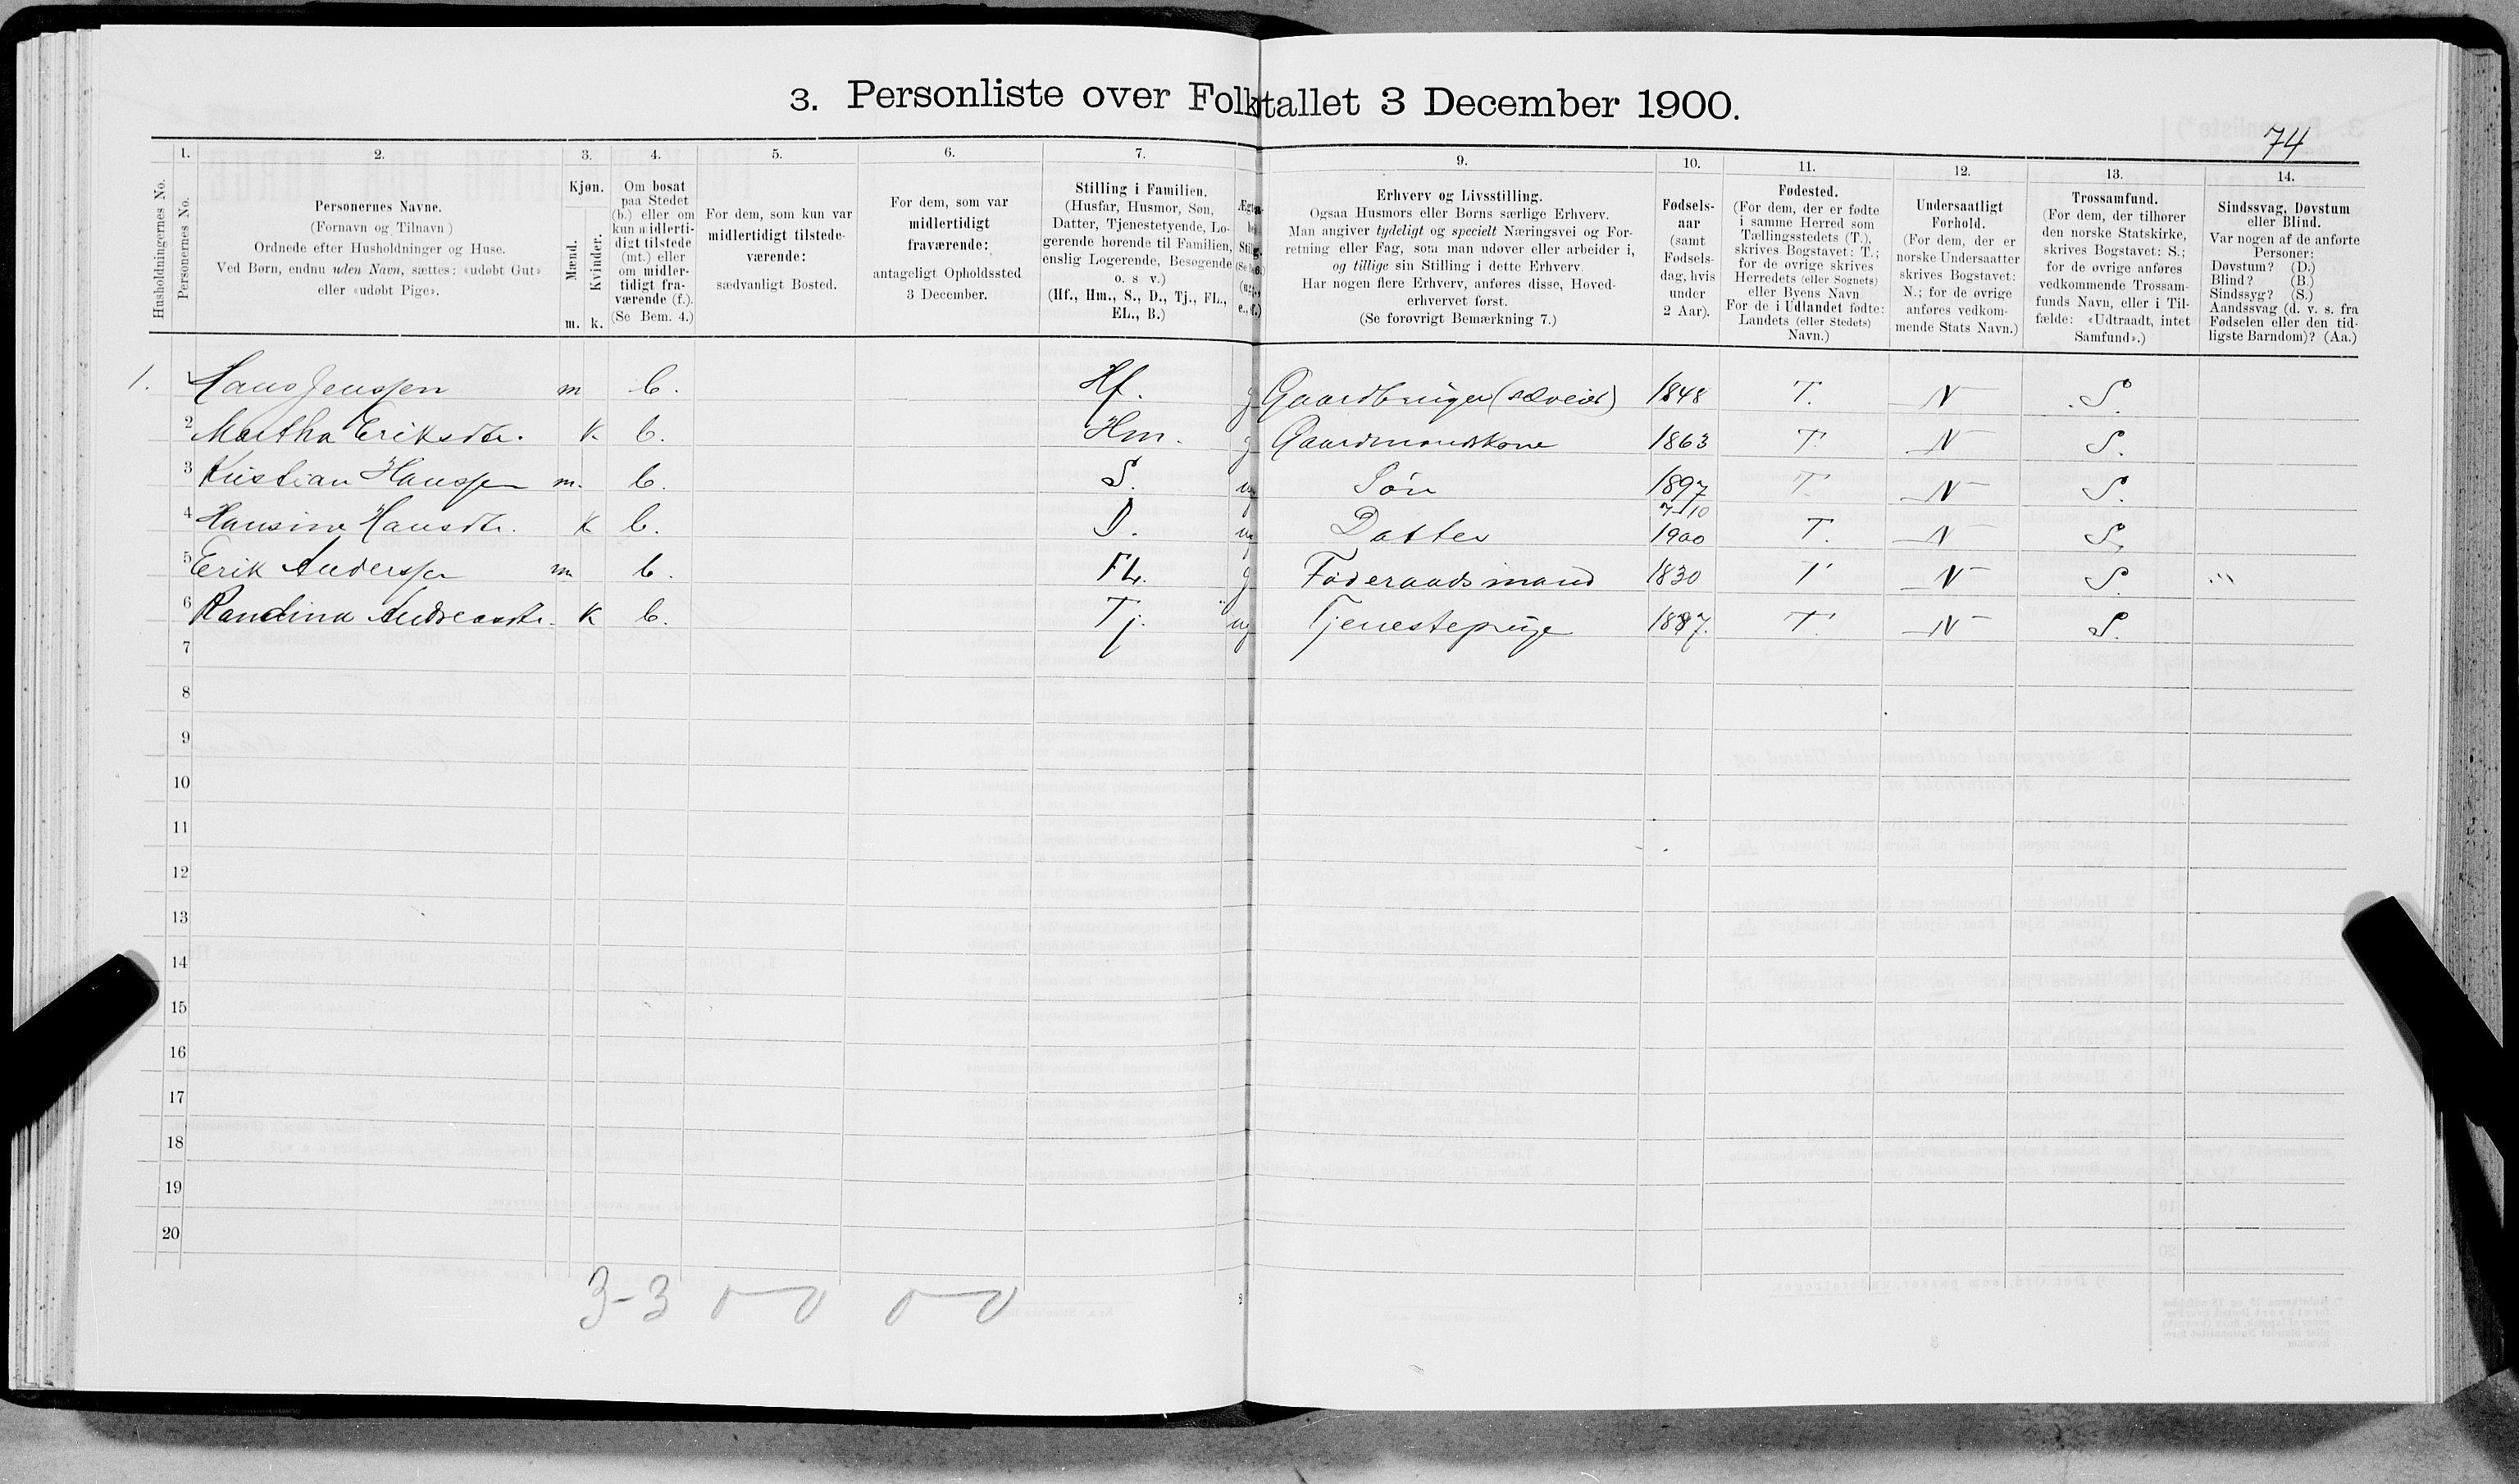 3. Personliste over Folketallet 3 December 1900.
74
Husholdningernes No.
1.
Personernes No.
2.
Personernes Navne.
(Fornavn og Tilnavn)
Ordnede efter Husholdninger og Huse.
Ved Børn, endnu uden Navn, sættes: «udøbt Gut»
eller «udøbt Pige».
3.
Kjøn.
Mænd.
Kvinder.
m. k.
4.
Om bosat
paa Stedet
(b.) eller om
kun midlerti-
digt tilstede
(mt.) eller
om midler-
tidigt fra-
værende (f.).
(Se Bem. 4.)
5.
For dem, som kun var
midlertidigt tilstede-
værende:
sædvanligt Bosted.
6.
For dem, som var
midlertidigt
fraværende:
antageligt Opholdssted
3 December.
7.
Stilling i Familien.
(Husfar, Husmor, Søn,
Datter, Tjenestetyende, Lo-
gerende hørende til Familien,
enslig Logerende, Besøgende
o. s v.)
(Hf., Hm., S., D., Tj., FL.,
EL., B.)
9.
Erhverv og Livsstilling.
Ogsaa Husmors eller Børns særlige Erhverv.
Man angiver tydeligt og specielt Næringsvei og For-
retning eller Fag, som man udøver eller arbeider i,
og tillige sin Stilling i dette Erhverv.
Har nogen flere Erhverv, anføres disse, Hoved-
erhvervet først.
(Se forøvrigt Bemærkning 7.)
10.
Fødsels-
aar
(samt
Fødsels-
dag, hvis
under
2 Aar).
11.
Fødested.
(For dem, der er fødte
i samme Herred som
Tællingsstedets (T.),
skrives Bogstavet: T.;
for de øvrige skrives
Herredets (eller Sognets)
eller Byens Navn
For de i Udlandet fødte:
Landets (eller Stedets)
Navn.)
12.
Undersaatligt
Forhold.
(For dem, der er
norske Undersaatter
skrives Bogstavet:
N.; for de øvrige
anføres vedkom-
mende Stats Navn.)
13.
Trossamfund.
(For dem, der tilhører
den norske Statskirke,
skrives Bogstavet: S.;
for de øvrige anføres
vedkommende Trossam-
funds Navn, eller i Til-
fælde: «Udtraadt, intet
Samfund».)
14.
Sindssvag, Døvstum
eller Blind.
Var nogen af de anførte
Personer:
Døvstum? (D.)
Blind? (B.)
Sindssyg? (S.)
Aandssvag (d. v. s. fra
Fødselen eller den tid-
ligste Barndom)? (Aa.)
1. 1 Hans Jenssen m b. Hf. g Gaardbruger (selveier) 1848 T. N S.
2 Martha Eriksdtr. K b. Hm. g Gaardmandskone 1863 T N S.
3 Kristian Hanssen m. b. S. ug Søn 1897 T. N S.
4 Hansine Hansdtr. K b. D. ug Datter 7-10 1900 T. N S.
5 Erik Anderssen m b. FL. g Føderaadsmand 1830 T N S.
6 Randina Andreasdtr. K b. Tj. ug Tjenestepige 1887. T. N S.
7
8
9
10
11
12
13
14
15
16
17
18
19
20
3-3 0-0 0-0